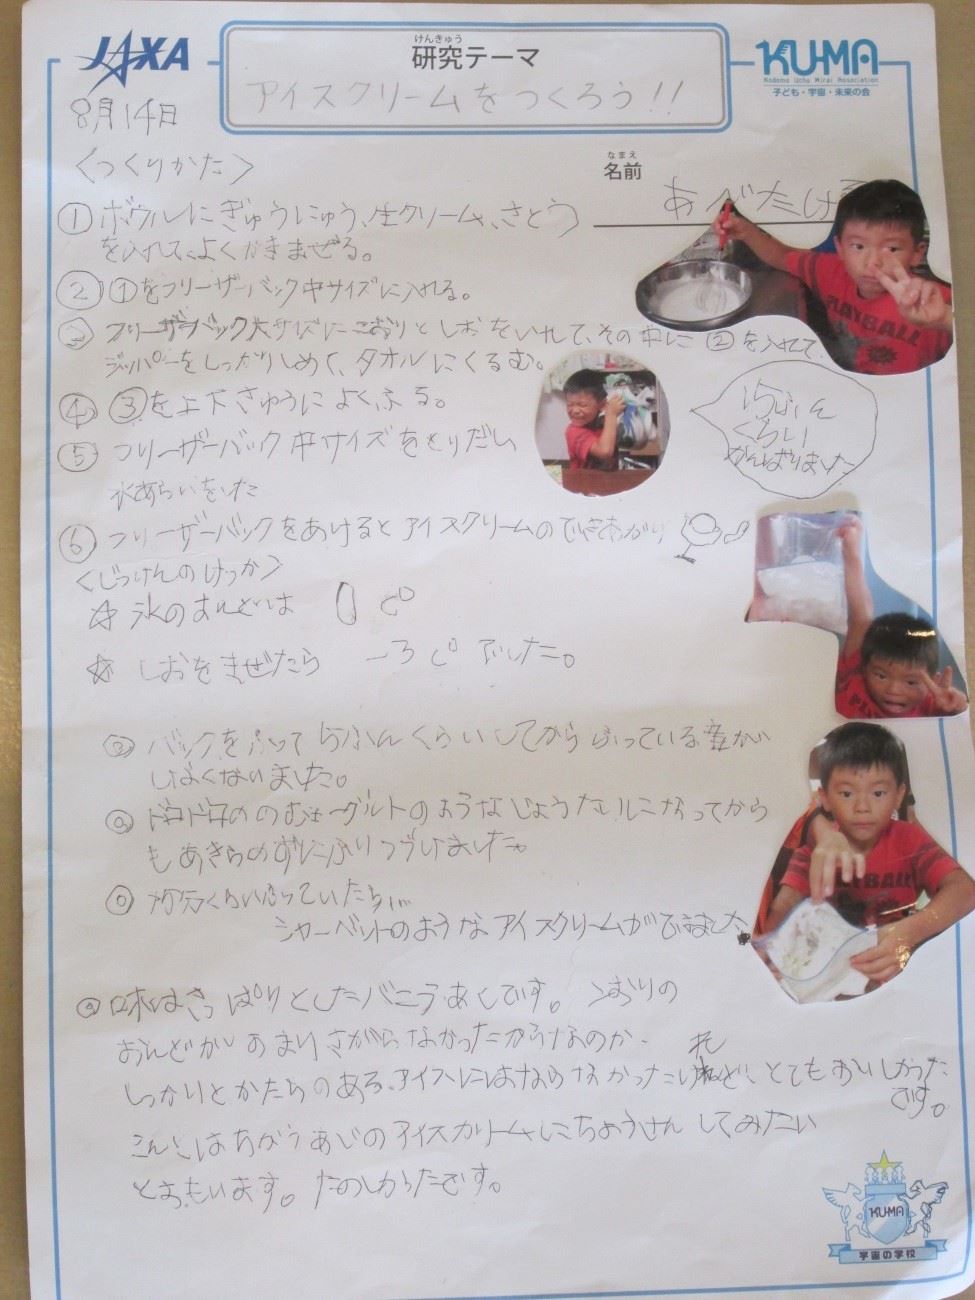 JAXA
けんきゅう
研究テーマ
アイスクリームをつくろう!!
KU-MA
Kodomo Uchu Mirai Association
子ども・宇宙・未来の会
8月14日
〈つくりかた〉
なまえ
名前
あべたけ
① ボウルにぎゅうにゅう、生クリーム、さとう
を入れて、よくかきまぜる。
② ①をフリーザーバック中サイズに入れる。
③ フリーザーバック大サイズにこおりとしおをいれて、その中に②を入れて、
ジッパーをしっかりしめて、タオルにくるむ。
④ ③を上下さゆうによくふる。
⑤ フリーザーバック中サイズをとりだし
水あらいをした
15ふん
くらい
がんばりました
⑥ フリーザーバックをあけるとアイスクリームのできあがり
〈じっけんのけっか〉
☆ 氷のおんどは 0 C°
☆ しおをまぜたら -3 C° でした。
◎ バックをふって 5ふんくらいしてからふっている音が
しなくないました。
◎ ドロドロののむヨーグルトのようなじょうたいになってから
もあきらめずにふりつづけました。
◎ 分くらいふっていたら...
シャーベットのようなアイスクリームができました。
◎ 味はさっぱりとしたバニラあじです。こおりの
おんどがあまりさがらなかったからなのか、
しっかりとかたちのあるアイスにはならなかったけれど、とてもおいしかった
です。
こんどはちがうあじのアイスクリームにちょうせんしてみたい
とおもいます。たのしかったです。
KU-MA
宇宙の学校